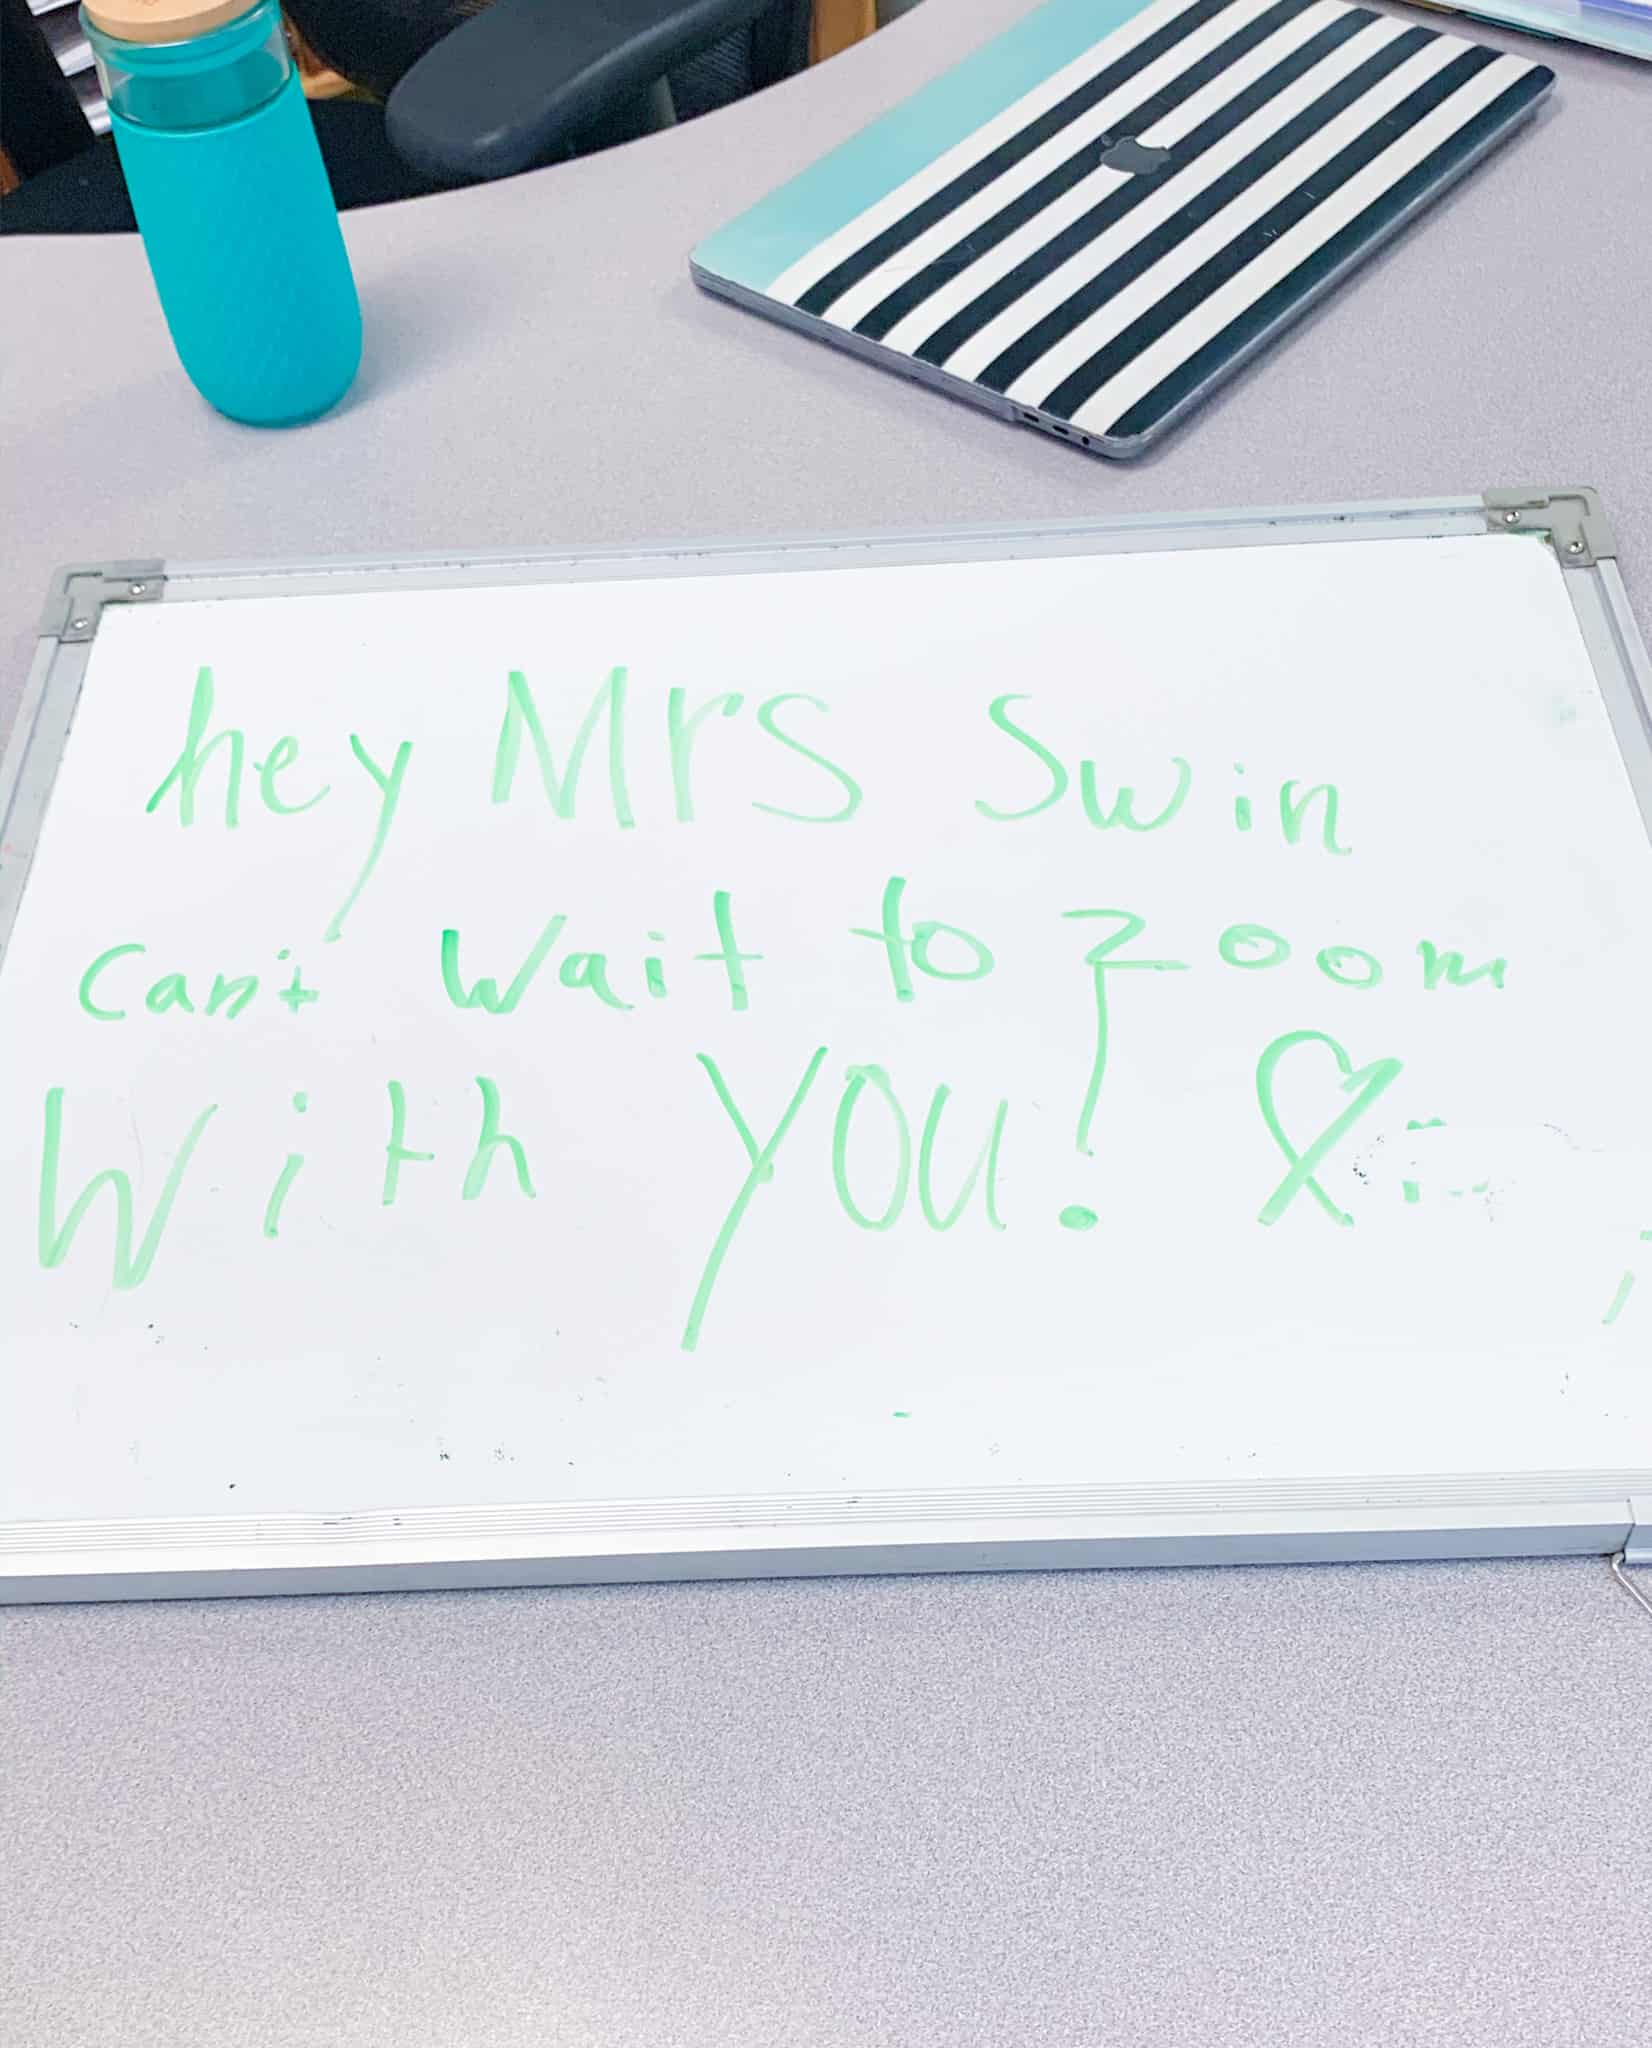 hey Mrs Swin
can't wait to zoom
With YOU!